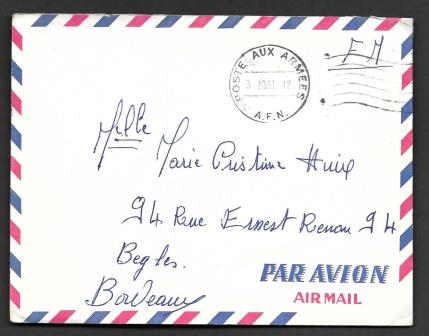 POSTE AUX ARMEES
F M
3 10 61. 12
A.F.N.
Mlle
Marie Cristine Huix
94 Rue Ernest Renan 94
Begles.
Bordeaux
PAR AVION
AIR MAIL